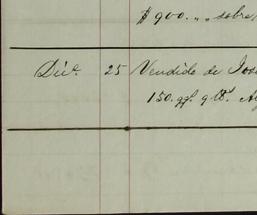 $900. „ „ sobre
Dic. 25 Vendido de José
150. qq.